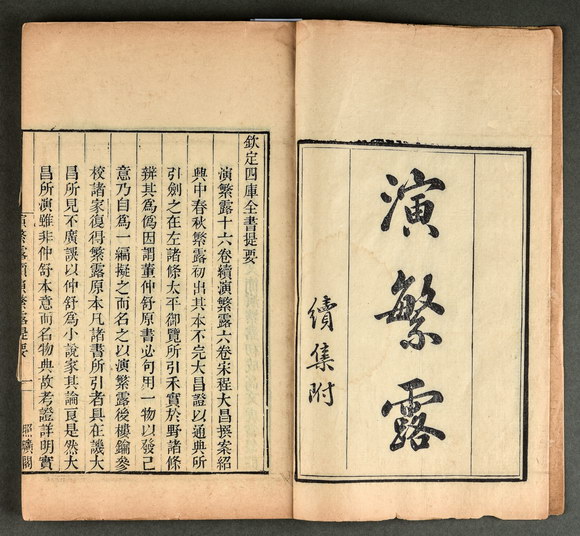 演繁露
續集附
欽定四庫全書提要
演繁露十六卷續演繁露六卷宋程大昌撰案紹
典中春秋繁露初出其本不完大昌證以通典所
引劍之在左諸條太平御覽所引禾實於野諸條
辨其爲僞因謂董仲舒原書必句用一物以發己
意乃自爲一編擬之而名之以演繁露後樓鑰參
校諸家復得繁露原本凡諸書所引者具在譏大
昌所見不廣誤以仲舒爲小說家其論良是然大
昌所演雖非仲舒本意而名物典故考證詳明實
演繁露 演繁露提要 一 照曠閣